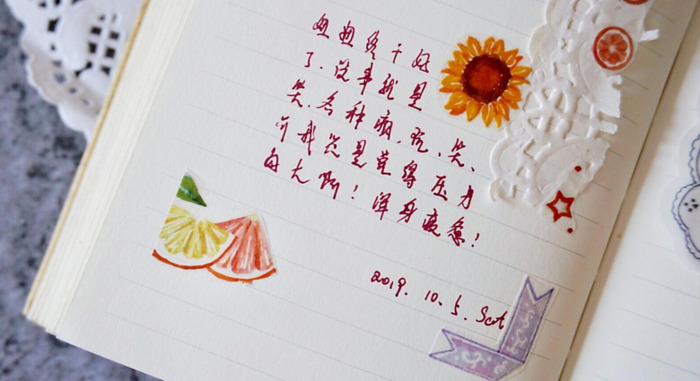 妞妞终于好
了.没事就是
笑.各种疯.玩.笑.
我总是觉得压力
大啊!浑身疲惫!
2019. 10. 5. Sat